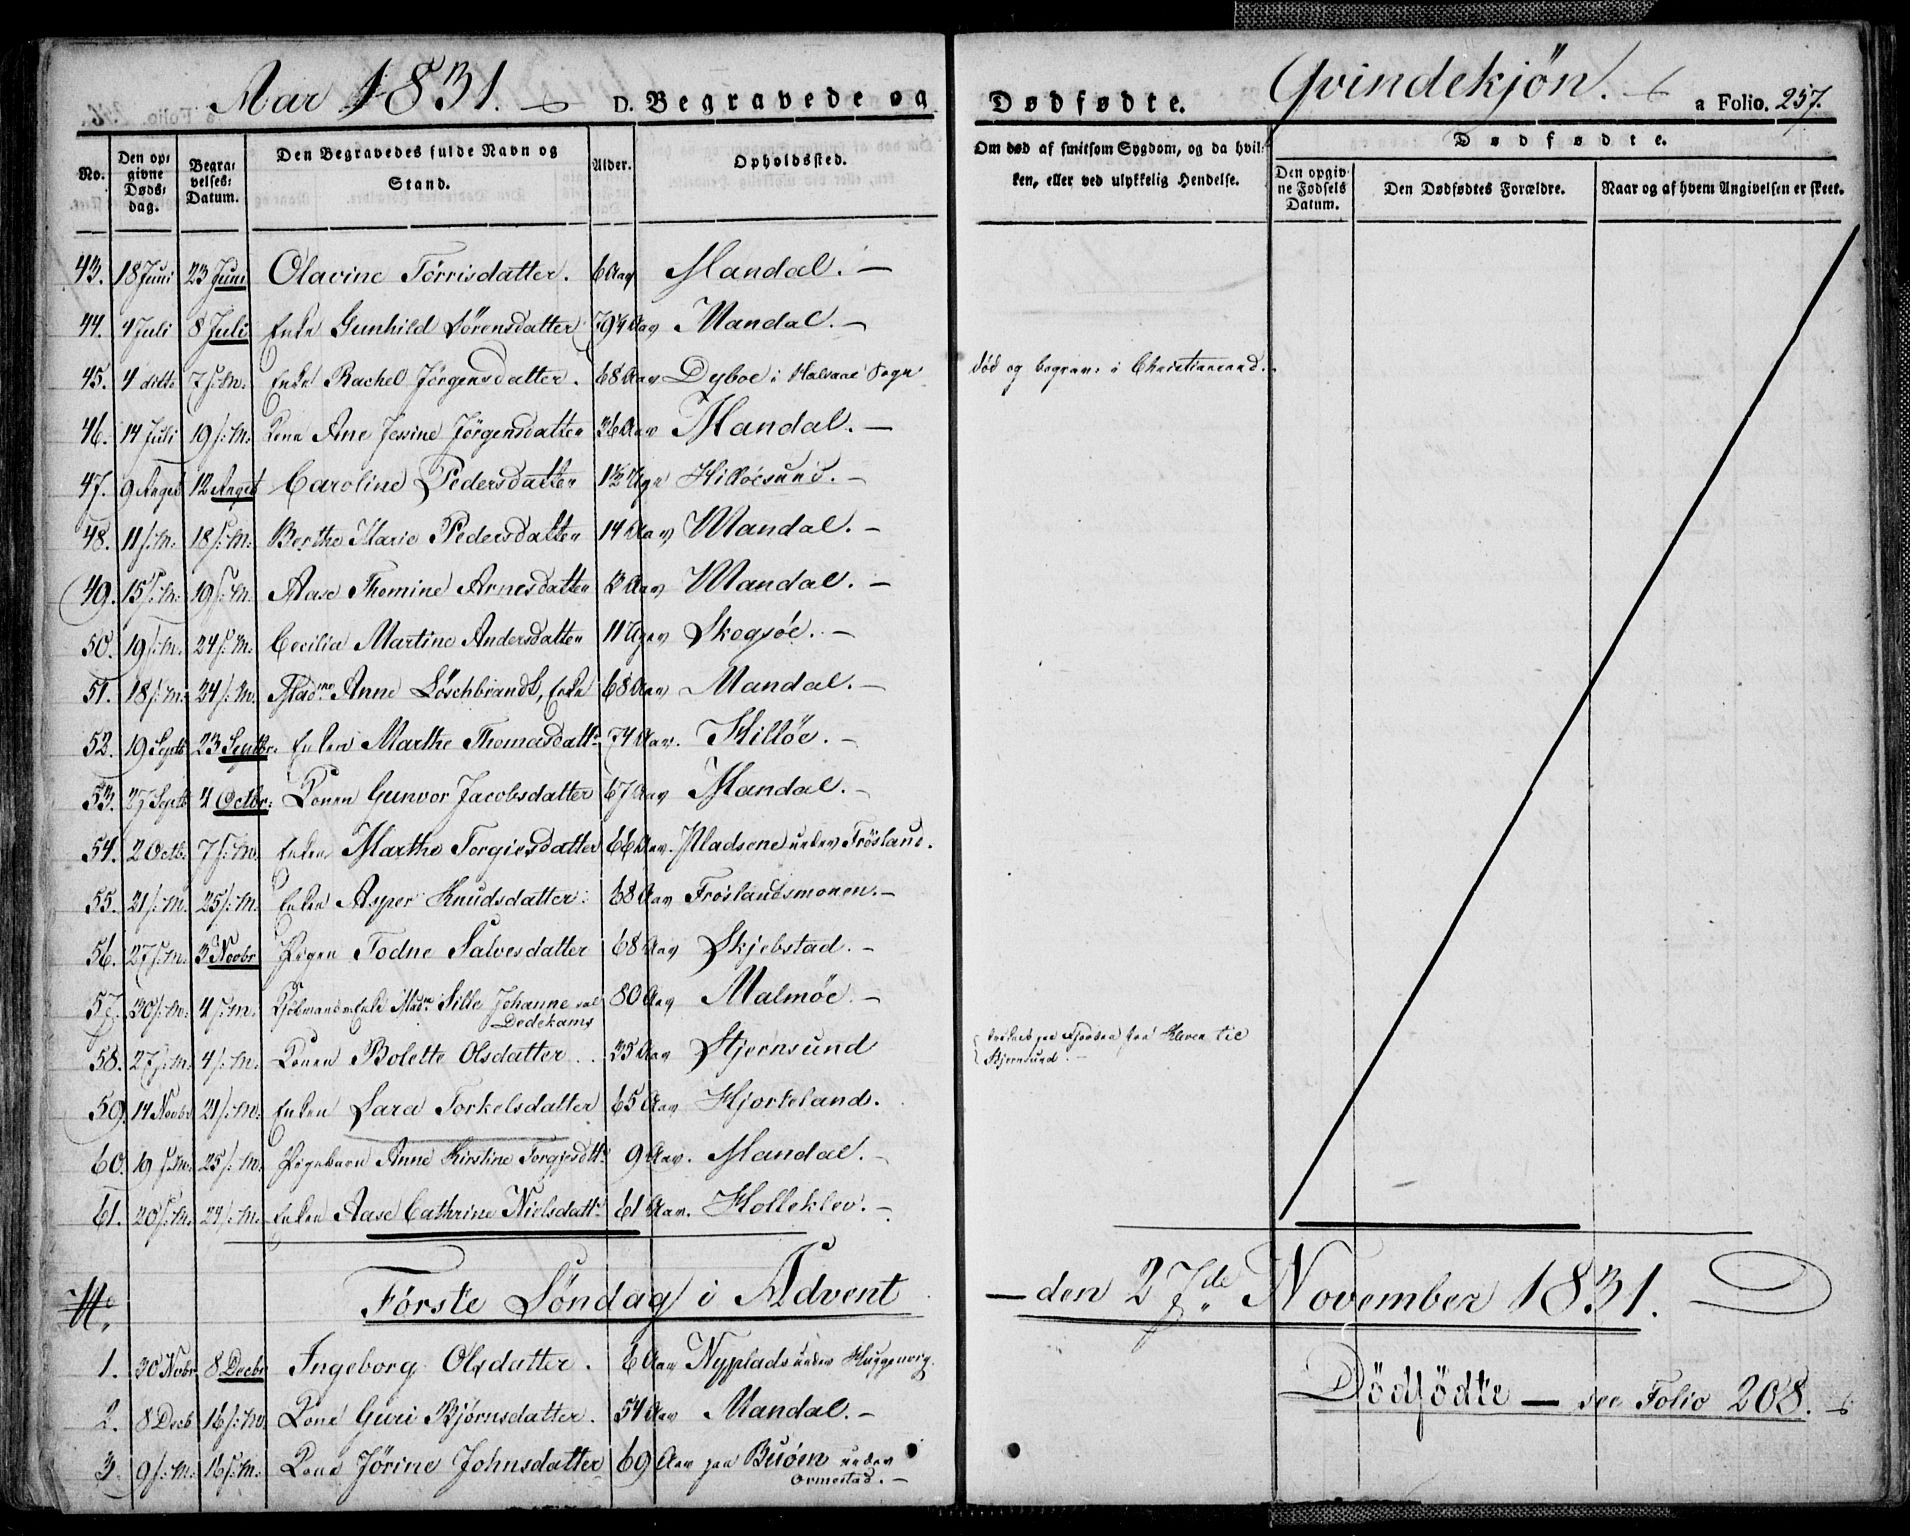 Aar 1831. D. Begravede og Dødfødte. Qvindekjøn. a Folio. 257.
No. Den opgivne Dødsdag. Begravelses-Datum. Den Begravedes fulde Navn og Stand. Alder. Opholdssted. Om død af smitsom Sygdom, og da hvilken, eller ved ulykkelig Hendelse. Dødfødte.
Den opgivne Fødsels Datum. Den Dødfødtes Forældre. Naar og af hvem Angivelsen er skeet.
43. 18 Juni 23 Juni Olavine Tørrisdatter. 6 Aar Mandal. —
44. 4 Juli 8 Juli Enke Gunhild Sørensdatter 79¼ Aar Mandal. —
45. 4 dito 7 s: M. Enke Rachel Jørgensdatter. 68 Aar Dyboe i Halsaae Sogn død og begrav: i Christiansand. -
46. 14 Juli 19 s: M. Kone Ane Jessine Jørgensdatter 36 Aar Mandal. —
47. 9 Augst 12 Augst Caroline Pedersdatter 1½ Uge Hilløesund. —
48. 11 s: M. 18 s: M. Berthe Marie Pedersdatter 14 Aar Mandal. —
49. 15 s: M. 19 s: M. Aase Thomine Arnesdatter Aar Mandal. —
50. 19 s: M. 24 s: M. Cecilia Martine Andersdatter 11 Uger Skogsøe. —
51. 18 s: M. 24 s: M. Madme Anne Løschbrandt, Enke 68 Aar Mandal. —
52. 19 Septb 23 Septbr. Enken Marthe Thomasdattr 74 Aar. Hilløe. —
53. 27 Septb 4 Octbr: Konen Gunvor Jacobsdatter 67 Aar Mandal. —
54. 2 Octb. 7 s: M. Enken Marthe Torgiesdatter 66 Aar. Pladsene under Frøsland.
55. 21 s: M. 25 s: M. Enken Asper Knudsdatter. 68 Aar Frøslandsmonen. —
56. 27 s: M. 3 Novbr Pigen Todne Salvesdatter 68 Aar Skjebstad. —
57. 30 s: M. 4 s: M. Kjøbmands Enke Madm Sille Johanne sal Dedekams 80 Aar Malmøe. —
58. 27 s: M. 4 s: M. Konen Bolette Olsdatter. 35 Aar Stjernsund druknet paa Fjorden fra Kleven til
Stjernsund. —
59. 14 Novbr 21 s: M. Enken Sara Torkelsdatter 65 Aar Hjorteland.
60. 19 s: M. 25 s: M. Pigebarn Anne Kirstine Torgjesdttr 9 Aar. Mandal. —
61. 20 s: M. 24 s: M. Enken Aase Cathrine Nielsdattr 61 Aar. Holleklev. —
Første Søndag i Advent — den 27de November 1831.
1. 30 Novbr 8 Decbr Ingeborg Olsdatter. 6 Aar Nyplads under Huggenvig.
Dödfödte — see Folio 208.
2. 8 Decb 16 s: M. Kone Guri Bjørnsdatter. 54 Aar Mandal. —
3. 9 s: M. 16 s: M. Kone Jørine Johnsdatter 69 Aar paa Buøen under
Ormestad. —